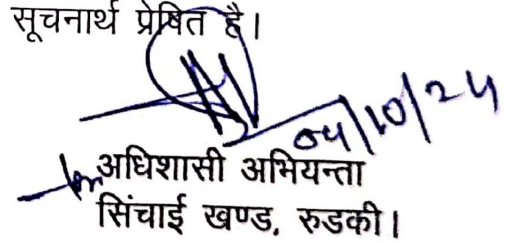 सूचनार्थ प्रेषित है।
04/10/24
अधिशासी अभियन्ता
सिंचाई खण्ड, रुडकी।